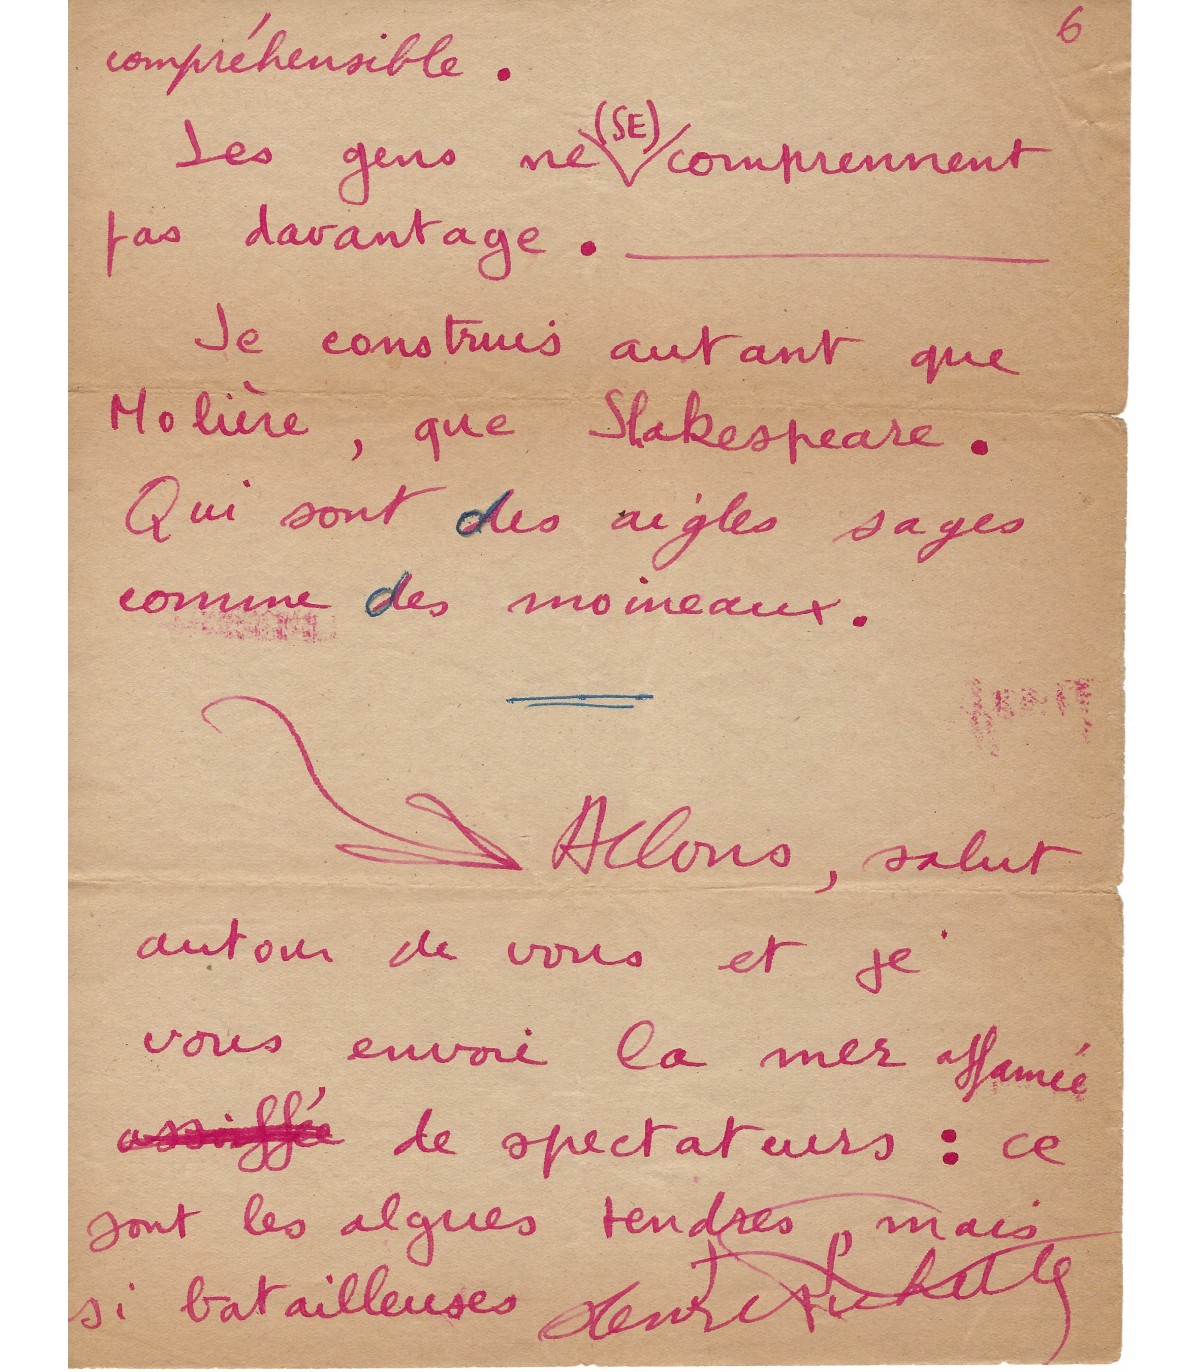 6
compréhensible.
Les gens ne (SE) comprennent
pas davantage.
Je construis autant que
Molière, que Shakespeare.
Qui sont des aigles sages
comme des moineaux.
Allons, salut
autour de vous et je
vous envoie la mer affamée
assoiffée de spectateurs : ce
sont les algues tendres, mais
si batailleuses Henri Pichette